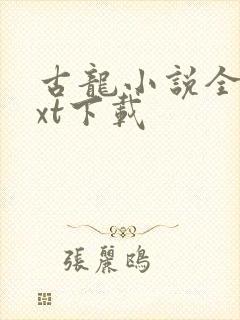 古龍小説全
xt下載
張麗鴎